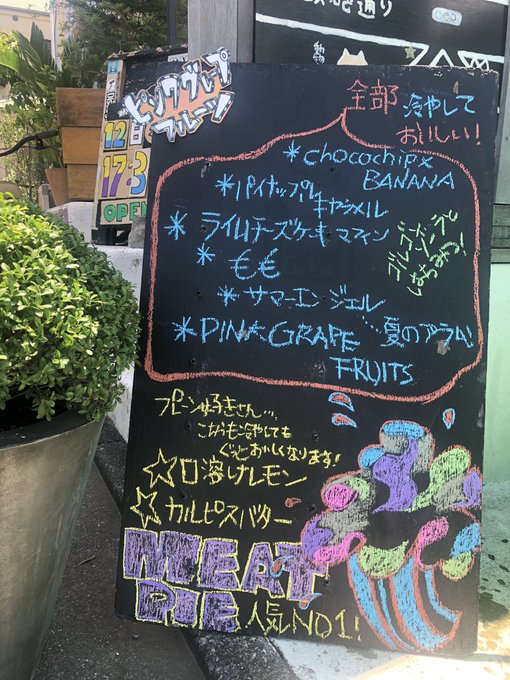 ピンクグレープ
フルーツ
12日
17.3
OPEN
動物
通り
全部 冷やして
おいしい!
*chocochip×
BANANA
*パイナップル
キャラメル
*ライムチーズケーキマフィン
*もも
*サマーエンジェル
…夏のアラム!
*PINK GRAPE
FRUITS
プレーン好きさん…
こちらも冷やしても
ぐっとおいしくなります!
☆口溶けレモン
☆カルピスバター
MEAT
PIE 人気NO1!